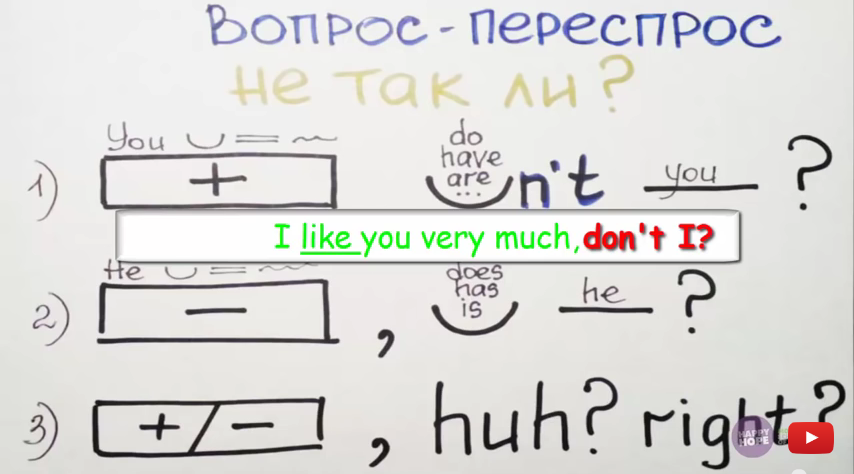 ВОПРОС-ПЕРЕСПРОС
НЕ ТАК ЛИ?
You
do
have
are
...
1) + n't you ?
I like you very much, don't I?
He
does
has
is
2) – , he ?
3) +/– , huh? right?
HAPPY
HOPE